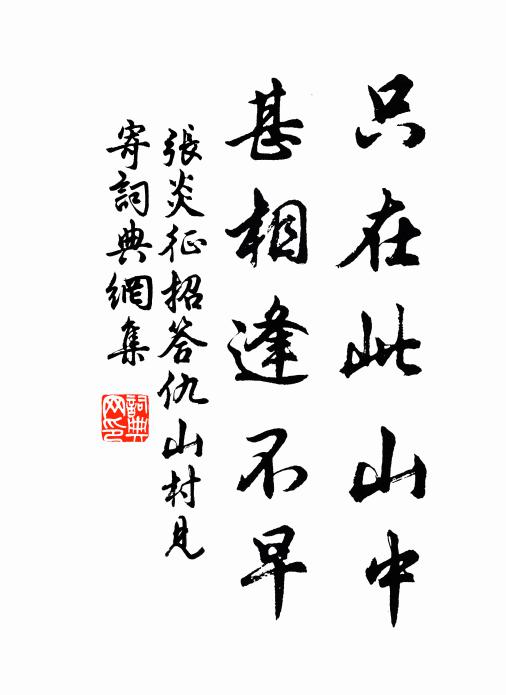 只在此山中
甚相逢不早
張炎征招答仇山村見
寄詞典網集
詞典網印